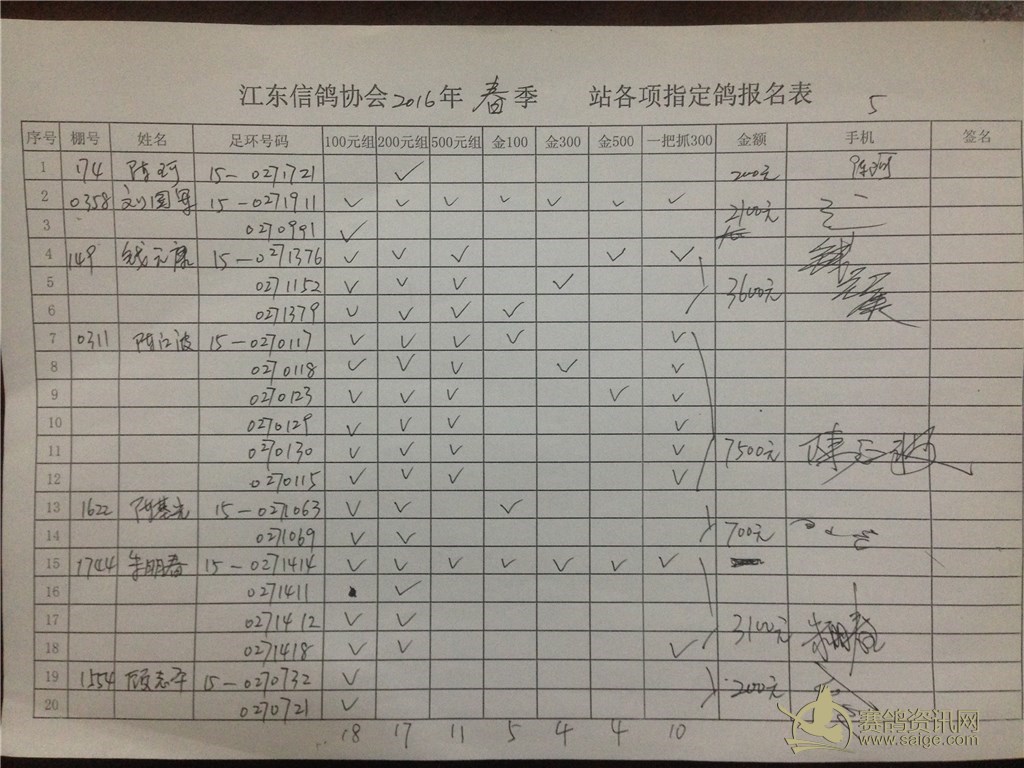 江东信鸽协会2016年 春季 站各项指定鸽报名表 5
序号 棚号 姓名 足环号码 100元组 200元组 500元组 金100 金300 金500 一把抓300 金额 手机 签名
1 174 陈珂 15-0271721 ✓ 200元 陈珂
2 0358 刘国军 15-0271911 ✓ ✓ ✓ ✓ ✓ ✓ ✓ 2100元
3 0270991 ✓
4 149 钱元康 15-0271376 ✓ ✓ ✓ ✓ ✓
5 0271152 ✓ ✓ ✓ ✓ 3600元
6 0271379 ✓ ✓ ✓ ✓
7 0311 陈江波 15-0270117 ✓ ✓ ✓ ✓ ✓
8 0270118 ✓ ✓ ✓ ✓ ✓
9 0270123 ✓ ✓ ✓ ✓ ✓
10 0270129 ✓ ✓ ✓ ✓
11 0270130 ✓ ✓ ✓ ✓ 7500元
12 0270115 ✓ ✓ ✓ ✓
13 1622 15-0271063 ✓ ✓ ✓
14 0271069 ✓ ✓ 700元
15 1744 朱明春 15-0271414 ✓ ✓ ✓ ✓ ✓ ✓ ✓
16 0271411 ✓
17 0271412 ✓ ✓ 3100元 朱明春
18 0271418 ✓ ✓ ✓
19 1554 顾志平 15-0270732 ✓ 200元
20 0270721 ✓
18 17 11 5 4 4 10
赛鸽资讯网
www.saigc.com